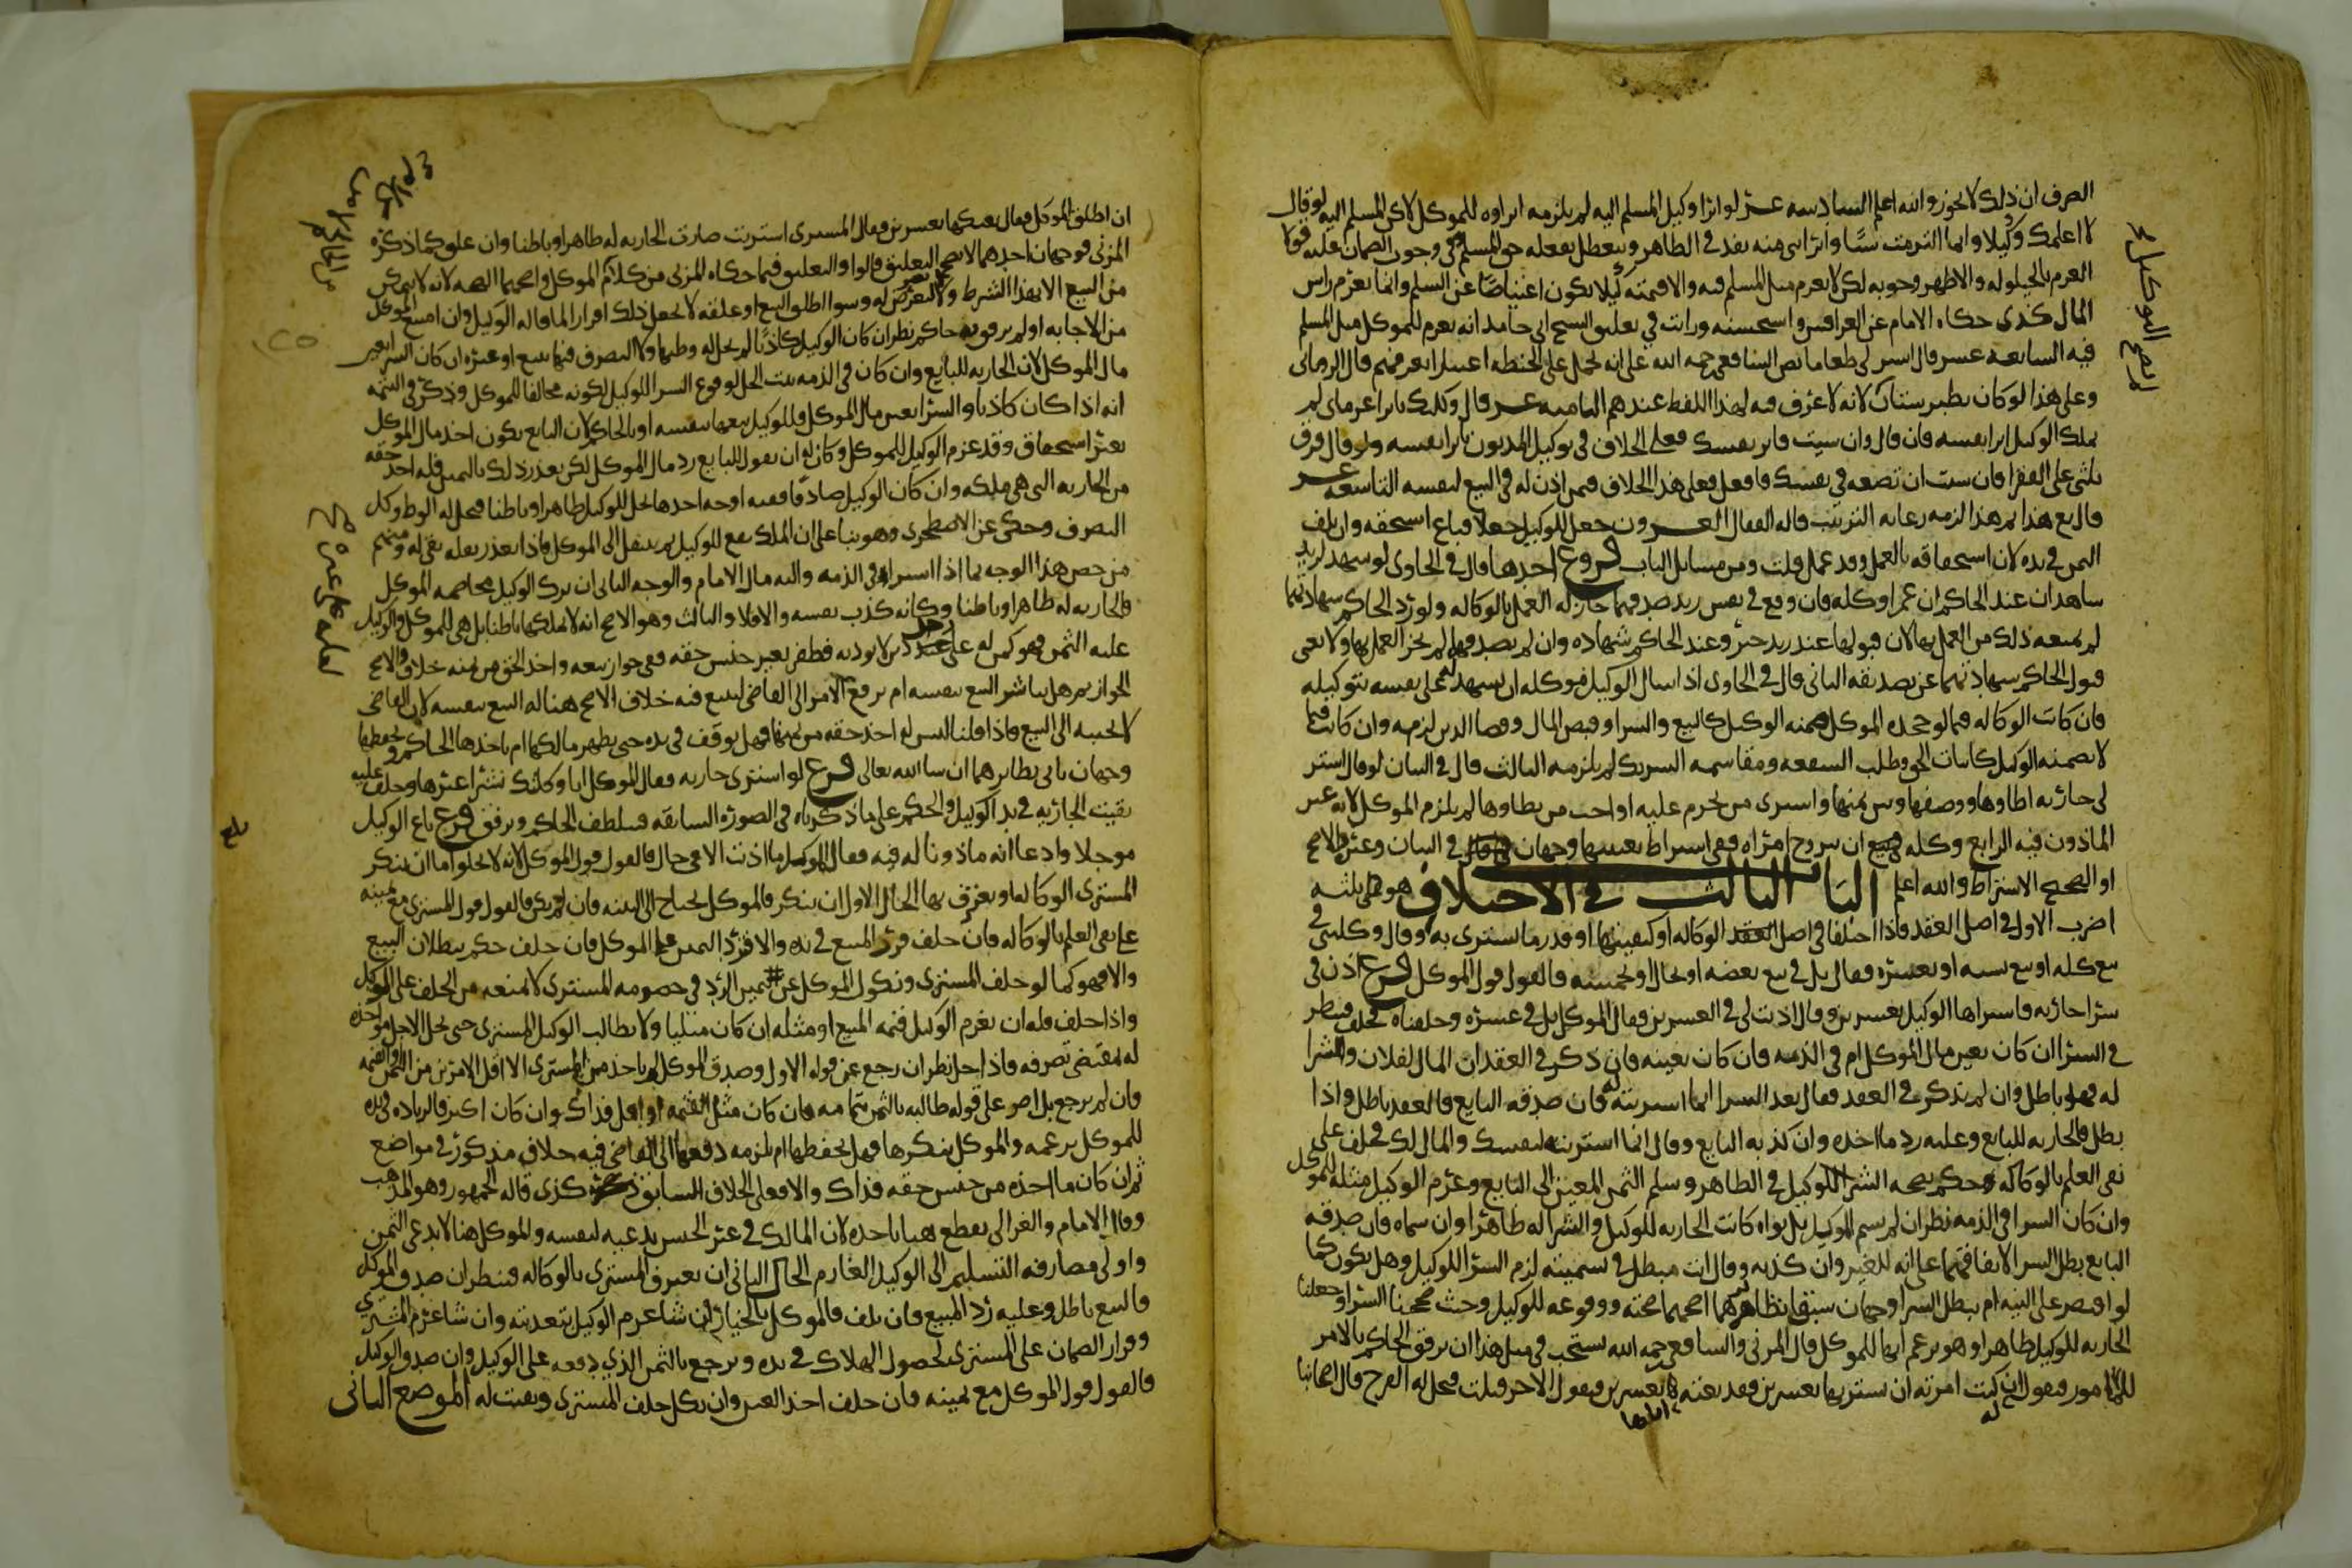 الصرف ان ذلك لا يجوز والله اعلم السادسه عشر لو ابرا وكيل المسلم المسلم اليه لم يلزمه ابراوه للموكل لاكن المسلم اليه لو قال
لا اعلمك وكيلا وانما التزمت شيا وابراتنى منه نفذ في الظاهر ويتعطل بفعله حق المسلم وفي وجوب الضمان عليه قولا
الغرم بالحيلوله والاظهر وجوبه لكن لا يغرم مثل المسلم فيه ولا قيمته كيلا يكون اعتياضا عن السلم وانما يغرم راس
المال كذى حكاه الامام عن العراقيين واستحسنه ورايت في تعليق الشيخ ابى حامد انه يغرم للموكل مثل المسلم
فيه السابعه عشر قال اشتر لى طعاما نص الشافعى رحمه الله على انه يحمل على الحنطه اعتبارا بعرفهم قال الرويانى
وعلى هذا لو كان بطبرستان لانه لا عرف فيه لهذا اللفظ عندهم الثامنه عشر قال وكلتك بابرا غرماى لم
يملك الوكيل ابرا نفسه فان قال وان شيت فابر نفسك فعلى الخلاف في توكيل المديون بابرا نفسه ولو قال فرق
ثلثى على الفقرا فان شيت ان تضعه في نفسك فافعل فعلى هذا الخلاف فيمن اذن له في البيع لنفسه التاسعه عشر
قال بع هذا ثم هذا لزمه رعايه الترتيب قاله القفال العشرون جعل للوكيل جعلا فباع استحقه وان تلف
الثمن في يده لان استحقاقه بالعمل وقد عمل قلت ومن مسائل الباب فروع احدها قال في الحاوى لو شهد لزيد
شاهدان عند الحاكم ان عمرا وكله فان وقع في نفس زيد صدقهما جاز له العمل بالوكاله ولو رد الحاكم شهادتهما
لم يمنعه ذلك من العمل بها لان قبولها عند زيد خبر وعند الحاكم شهاده وان لم يصدقهما لم يجز العمل بها ولا يغنى
قبول الحاكم شهادتهما عن تصديقه الثانى قال في الحاوى اذا سال الوكيل موكله ان يشهد على نفسه بتوكيله
فان كانت الوكاله فيما لو جحده الموكل ضمنه الوكيل كالبيع والشرا وقبض المال وقضا الدين لزمه وان كانت فيما
لا يضمنه الوكيل كاثبات الحق وطلب الشفعه ومقاسمه الشريك لم يلزمه الثالث قال في البيان لو قال اشتر
لى جاريه اطاوها ووصفها وبين ثمنها واشترى من تحرم عليه او اخت من يطاوها لم يلزم الموكل لانه غير
الماذون فيه الرابع وكله ان يتزوج امراه ففى اشتراط تعيينها وجهان في البيان وغيره الاصح
او الصحيح الاشتراط والله اعلم الباب الثالث في الاختلاف هو على ثلثه
اضرب الاول في اصل العقد فاذا اختلفا في اصل الوكاله او كيفيتها او قدر ما يشترى به وقال وكلتنى في
بيع كله او بيع نسيه او بعشره فقال بل في بيع بعضه او بحال او بخمسه فالقول قول الموكل فرع اذن في
شرا جاريه فاشتراها الوكيل بعشرين وقال اذنت لى في العشرين فقال الموكل بل في عشره وحلفناه فحلف فينظر
في الشرا ان كان بعين مال الموكل ام في الذمه فان كان بعينه فان ذكر في العقد ان المال لفلان والشرا
له فهو باطل وان لم يذكر في العقد فقال بعد الشرا انما اشتريته له فان صدقه البايع فالعقد باطل واذا
بطل فالجاريه للبايع وعليه رد ما اخذه وان كذبه البايع وقال انما اشتريته لنفسك والمال لك فحلف على
نفى العلم بالوكاله وحكم بصحه الشرا للوكيل في الظاهر وسلم الثمن المعين الى البايع وغرم الوكيل مثله للموكل
وان كان الشرا في الذمه نظر ان لم يسم الموكل بل نواه كانت الجاريه للوكيل والشرا له ظاهرا وان سماه فان صدقه
البايع بطل الشرا لاتفاقهما على انه للغير وان كذبه وقال انت مبطل في تسميته لزم الشرا للوكيل وهل يكون كما
لو اقتصر على النيه ام يبطل الشرا وجهان سبق نظايرهما اصحهما صحته ووقوعه للوكيل وحيث صححنا الشرا وجعلنا
الجاريه للوكيل ظاهرا وهو يزعم انها للموكل قال المزنى والشافعى رحمه الله يستحب في مثل هذا ان يرفق الحاكم بالامر
للمامور فيقول ان كنت امرته ان يشتريها بعشرين فقد بعته اياها بعشرين فيقول الاخر قبلت فيحل له الفرج قال اصحابنا
ان اطلق الموكل فقال بعتكها بعشرين فقال المشترى اشتريت صارت الجاريه له ظاهرا وباطنا وان علق كما ذكره
المزنى فوجهان احدهما لا يصح التعليق قالوا والتعليق فيما حكاه المزنى من كلام الموكل واصحهما الصحه لانه لا يتمكن
من البيع الا بهذا الشرط ولا يضر التعرض له وسوا اطلق البيع او علقه لا نجعل ذلك اقرارا لما قاله الوكيل وان امتنع الموكل
من الاجابه او لم يرفق به حاكم نظر ان كان الوكيل كاذبا لم يحل له وطيها ولا التصرف فيها ببيع او غيره ان كان الشرا بعين
مال الموكل لان الجاريه للبايع وان كان في الذمه ثبت الحل لوقوع الشرا للوكيل لكونه مخالفا للموكل وذكر في التتمه
انه اذا كان كاذبا والشرا بعين مال الموكل فللوكيل بيعها بنفسه او بالحاكم لان البايع يكون اخذ مال الموكل
بغير استحقاق وقد غرم الوكيل للموكل وكان له ان يقول للبايع رد مال الموكل لكن تعذر ذلك باليمين فله اخذ حقه
من الجاريه التى هى ملكه وان كان الوكيل صادقا ففيه اوجه احدها تحل للوكيل ظاهرا وباطنا فيحل له الوطى وكل
التصرف وحكى عن الاصطخرى وهو بنا على ان الملك يقع للوكيل ثم ينتقل الى الموكل فاذا تعذر نقله بقى له ومنهم
من خص هذا الوجه بما اذا اشتراه في الذمه واليه مال الامام والوجه الثانى ان ترك الوكيل مخاصمه الموكل
فالجاريه له ظاهرا وباطنا وكانه كذب نفسه والا فلا والثالث وهو الاصح انه لا يملكها باطنا بل هى للموكل وللوكيل
عليه الثمن فهو كمن له على رجل دين لا يوديه فظفر بغير جنس حقه ففى جواز بيعه واخذ الحق من ثمنه خلاف والاصح
الجواز ثم هل يباشر البيع بنفسه ام يرفع الامر الى القاضى ليبيع فيه خلاف الاصح هنا له البيع بنفسه لان القاضى
لا يجيبه الى البيع فاذا قلنا ليس له اخذ حقه من ثمنها فهل يوقف في يده حتى يظهر مالكها ام ياخذها الحاكم ويحفظها
وجهان ياتى نظايرهما ان شا الله تعالى فرع لو اشترى جاريه فقال الموكل انما وكلتك بشرا غيرها وحلف عليه
بقيت الجاريه في يد الوكيل والحكم على ما ذكرناه في الصوره السابقه فيتلطف الحاكم ويرفق فرع باع الوكيل
موجلا وادعا انه ماذونا له فيه فقال الموكل ما اذنت الا في حال فالقول قول الموكل لانه لا يخلوا اما ان ينكر
المشترى الوكاله او يعترف بها الحال الاول ان ينكر فالموكل يحتاج الى البينه فان لم يكن فالقول قول المشترى مع يمينه
على نفى العلم بالوكاله فان حلف قرر المبيع في يده والا فترد اليمين على الموكل فان حلف حكم ببطلان البيع
والا فهو كما لو حلف المشترى ونكول الموكل عن يمين الرد في خصومه المشترى لا يمنعه من الحلف على الوكيل
واذا حلف فله ان يغرم الوكيل قيمه المبيع او مثله ان كان مثليا ولا يطالب الوكيل المشترى حتى يحل الاجل مواخذه
له بمقتضى تصرفه فاذا حل نظر ان رجع عن قوله الاول وصدق الموكل لم ياخذ من المشترى الا اقل الامرين من الثمن والقيمه
فان لم يرجع بل اصر على قوله طالبه بالثمن بتمامه فان كان مثل القيمه او اقل فذاك وان كان اكثر فالزياده في يده
للموكل بزعمه والموكل ينكرها فهل يحفظها ام يلزمه دفعها الى القاضى فيه خلاف مذكور في مواضع
ثم ان كان ما اخذه من جنس حقه فذاك والا فعلى الخلاف السابق كذى قاله الجمهور وهو المذهب
وقال الامام والغزالى يقطع هنا باخذه لان المالك في غير الجنس يدعيه لنفسه والموكل هنا لا يدعى الثمن
واولى مصارفه التسليم الى الوكيل الغارم الحال الثانى ان يعترف المشترى بالوكاله فينظر ان صدق الموكل
فالبيع باطل وعليه رد المبيع فان تلف فالموكل بالخيار ان شا غرم الوكيل لتعديته وان شا غرم المشترى
وقرار الضمان على المشترى لحصول الهلاك في يده ويرجع بالثمن الذي دفعه على الوكيل وان صدق الوكيل
فالقول قول الموكل مع يمينه فان حلف اخذ العين وان نكل حلف المشترى وبقيت له الموضع الثانى